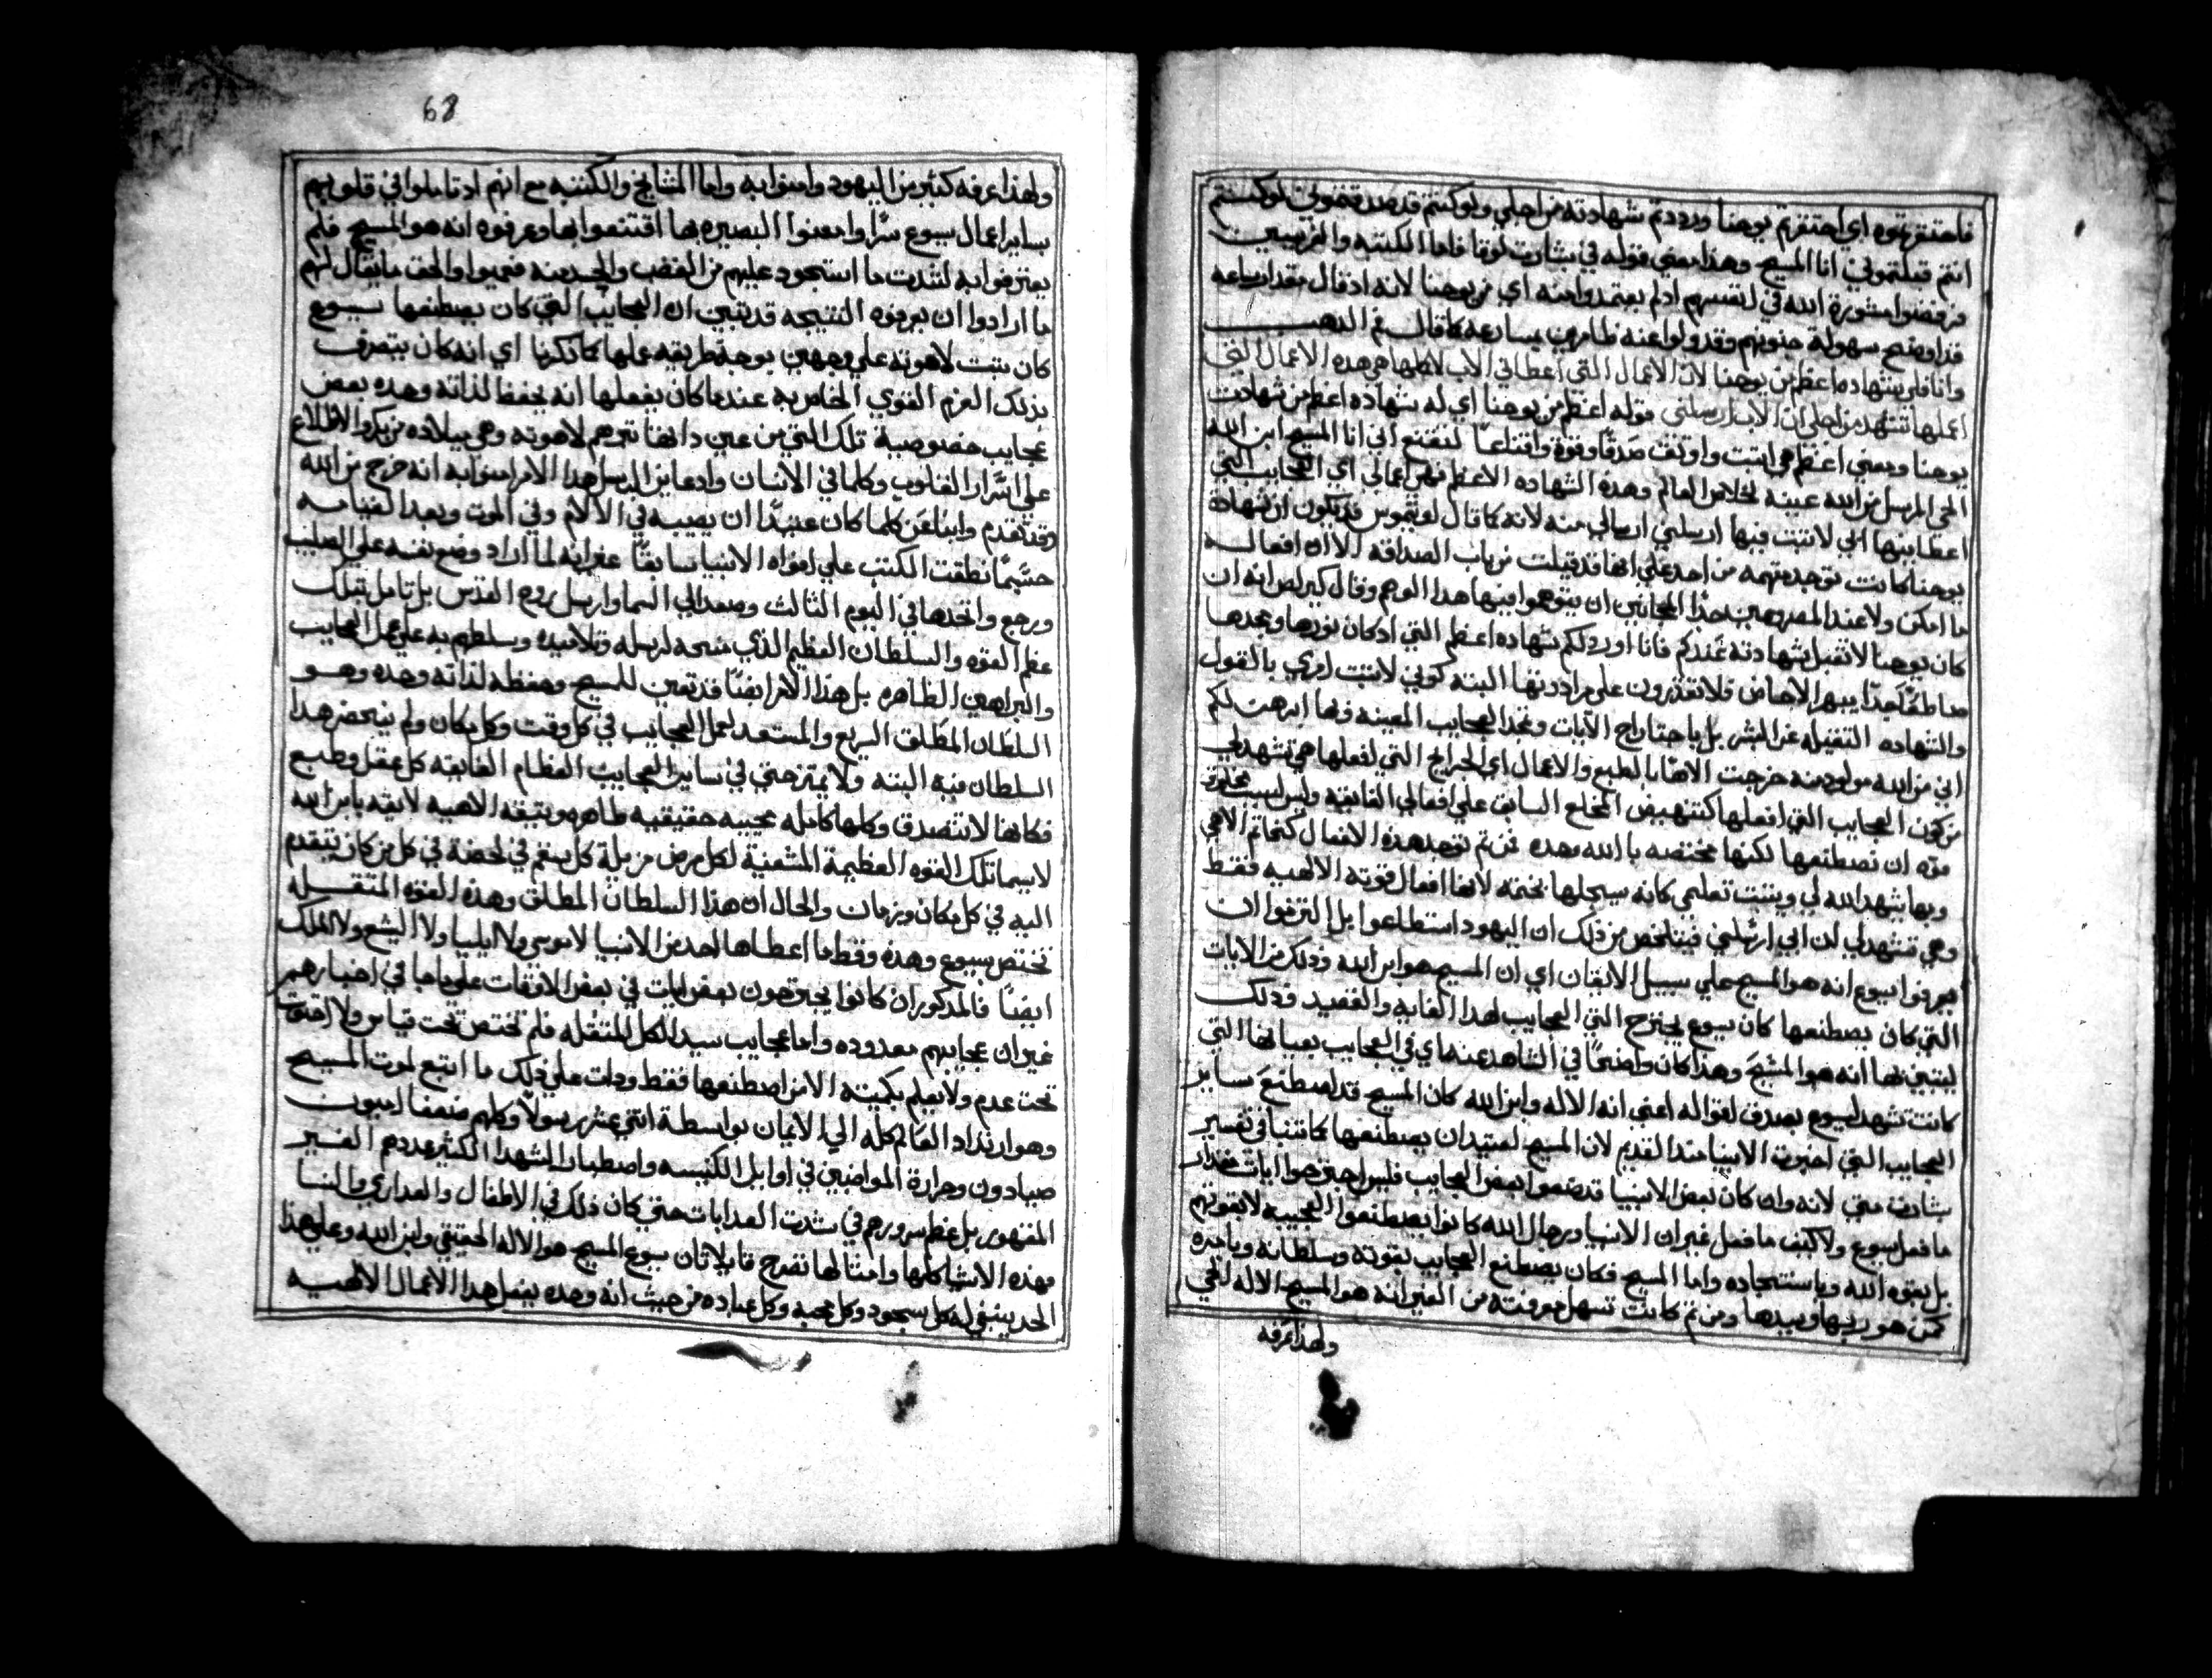 فاحتقرتموه اي احتقرتم يوحنا ورددتم شهادته من اجلي ولو كنتم قد صدقتموني لو كنتم
انتم قبلتموني انا المسيح وهذا معني قوله في بشارت لوقا فاما الكتبه والفريسيين
فرفضوا مشورة الله في انفسهم اذ لم يعتمدوا منه اي من يوحنا لانه اذ قال مقدار ساعه
فدا وضح سهولة جنونهم وقد ولوا عنه ظاهرين بمسارعه كما قال فم الذهب
وانا فلي شهاده اعظم من يوحنا لان الاعمال التي اعطاني الاب لاكملها هي هذه الاعمال التي
اعملها تشهد من اجلي ان الاب ارسلني قوله اعظم من يوحنا اي له شهاده اعظم من شهادت
يوحنا ومعني اعظم هي اتبت واوتق صدقًا وقوة واقتناعًا لتقتنع اني انا المسيح ابن الله
الحي المرسل من الله عينه لخلاص العالم وهذه الشهاده الاعظم هي اعمالي اي العجايب التي
اعطانيها ابي لاتبت فيها ارسلني ارسالي منه لانه كما قال لونجوس قد تكون ان شهادة
يوحنا كانت توجد متهمه من احد علي انها قد قيلت من باب الصداقه الا ان افعاله
ما امكن ولا عند المفروميين جدًا المجانين ان يتوهموا فيها هذا الوهم وقال كيرلص انه ان
كان يوحنا لا تقبل شهادته عندكم فانا اورد لكم شهاده اعظم التي اذ كان نورها ومجدها
ساطعًا جدًا يبهر الالحاض فلا تقدرون علي مرادونها البته كوني لا اتبت امري بالقول
والشهاده التقيله عن البشر بل باجتراح الايات ومجد العجايب المعينه فيما ابرهن لكم
اني من الله مولود منه خرجت الاها بالطبع والاعمال اي الجرايح التي افعلها هي تشهد لي
من كون العجايب التي افعلها كتنهيض المخلع السابق علي افعالي الفايقه وليس لسبب مخلوق
قوه ان تصطنعها لكنها مختصه بالله وحده فمن تم توجد هذه الافعال كخاتم الاهي
وبها يشهد الله لي ويتبت تعليمي كانه سيجلها بختمه لانها افعال قوته الالهيه فقط
وهي تشهد لي ان ابي ارسلني فيتلخص من ذلك ان اليهود استطاعوا بل التزموا ان
يعرفوا يسوع انه هو المسيح علي سبيل الايقان اي ان المسيح هو ابن الله وذلك من الايات
التي كان يصطنعها كان يسوع يجترح التي العجايب لهذا الغايه والقصد وذلك
ليتبين بها انه هو المسيح وهذا كان واضحًا في الشاهد عنه اي في العجايب بعيانها التي
كانت تشهد ليسوع بصدق اقواله اعني انه الاله وابن الله كان المسيح قد اصطنع ساير
العجايب التي اخبرت الانبيا منذ القديم لان المسيح لعتيد ان يصطنعها كما تبنا في تفسير
بشارت متي لانه وان كان بعض الانبيا قد صنعوا بعض العجايب فليس اجترحوا ايات مقدار
ما فعل يسوع ولا كيف ما فعل غير ان الانبيا ورجال الله كانوا يصطنعوا العجيبه لا بقوتهم
بل بقوه الله وباستنجاده واما المسيح فكان يصطنع العجايب بقوته وسلطانه وبامره
كمن هو ربها وسيدها ومن تم كانت تسهل معرفته من الغير انه هو المسيح الاله الحي
ولهذا عرفه
68
ولهذا عرفه كثير من اليهود وامنوا به واما المشايخ والكتبه مع انهم اذ تاملوا في قلوبهم
بساير اعمال يسوع سرًا وامعنوا البصيره بها اقتنعوا بها وعرفوه انه هو المسيح فلم
يعترفوا به لشدت ما استحود عليهم من الغضب والحسد منه فعميوا والحق ما يقال لهم
ما ارادوا ان يعرفوه النتيجه قد تبين ان العجايب التي كان يصطنعها يسوع
كان تتبت لاهوته علي وجهين بوجه طريقه عملها كما ذكرنا اي انه كان يتصرف
بذلك العزم القوي الخاص به عندما كان يفعلها انه يحفظ لذاته وحده بعض
عجايب خصوصية تلك التي من عين ذاتها تبرهم لاهوته وهي ميلاده من بكر والاطلاع
علي اسرار القلوب وكلما في الانسان وادعا بين المرسل هذا الامر امنوا به انه خرج من الله
وقد تقدم وابنا عن كلما كان عتيدًا ان يصيبه في الالام وفي الموت وبعد القيامه
حسبما نطقت الكتب علي افواه الانبيا سابقًا عنه انه لما اراد وضع نفسه علي الصليب
ورجع واخدها في اليوم الثالث وصعد الي السما وارسل روح القدس بل تامل بتلك
عظم القوه والسلطان العظيم الذي منحه لرسله وتلاميذه وسلطهم به علي عمل العجايب
والبراهين الظاهره بل هذا الامر ايضًا قد تعين للمسيح وحفظه لذاته وحده وهو
السلطان المطلق السريع والمستعد لعمل العجايب في كل وقت وكل مكان ولم ينحصر هذا
السلطان فيه البته ولا يمتزحتي في ساير العجايب العظام الفايقه كل عقل وطبع
فكانها لا تتصدق وكلها كامله عجيبه حقيقيه ظاهره وتيقه الاهيه لايقه بابن الله
لاسيما تلك القوه العظيمة المشفية لكل مرض مزيلة كل سقم في لحضة في كل من كان يتقدم
اليه في كل مكان وزمان والحال ان هذا السلطان المطلق وهذه القوه المتقله
تختص بيسوع وحده وقط ما اعطاها لاحد من الانبيا لا موسي ولا ايليا ولا اليشع ولا الملك
ايضًا فالمذكوران كانوا يجترحون بعض ايات في بعض الاوقات علي ما جا في اخبارهم
غير ان عجايبهم معدوده واما عجايب سيد الكل المتقله فلم تختص تحت قياس ولا احتوت
تحت عدم ولا يعلم بكميته الا من اصطنعها فقط ودات علي ذلك ما اتبع لموت المسيح
وهو ارتداد العالم كله الي الايمان بواسطة اتني عشر رسولًا وكلهم ضعفا اميون
صيادون وحرارة المواضبين في اوايل الكنيسه واصطبار الشهدا الكثير عددهم الغير
المقهور بل عظم سرورهم في شدت العدابات حتي كان ذلك في الاطفال والعداري والنسا
فهذه الاشيا كلها وامثالها تصرح قايلا ان يسوع المسيح هو الاله الحقيقي وابن الله وعلي هذا
الحد ينبغي له كل سجود وكل محبه وكل عباده من حيث انه وحده يفعل هذا الاعمال الالهيه